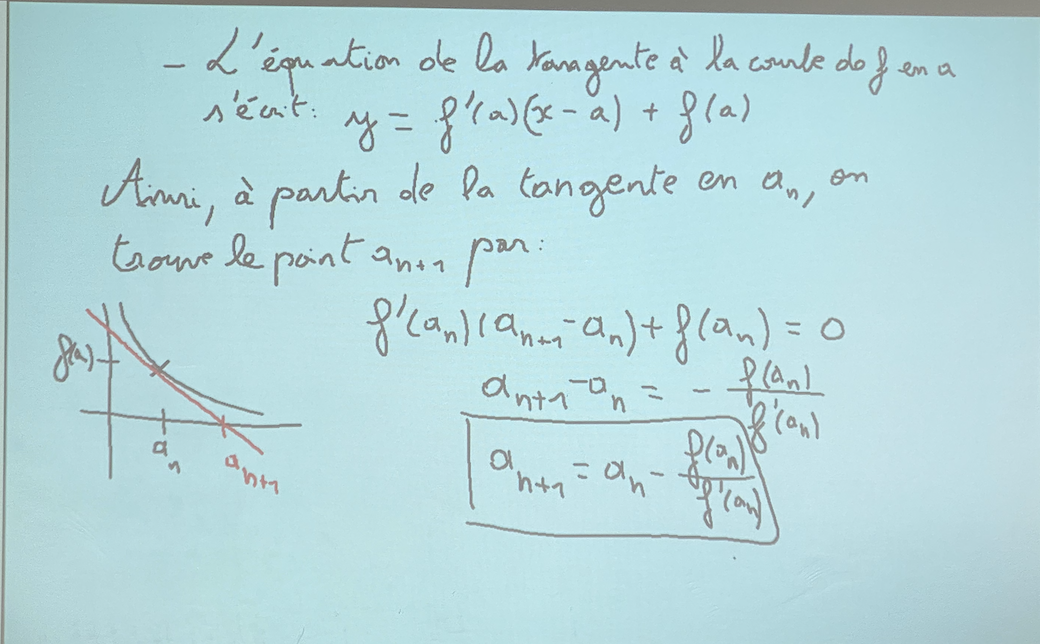 - L'équation de la tanagente à la courbe de f en a
s'écrit: y = f'(a)(x - a) + f(a)
Ainsi, à partir de la tangente en aₙ, on
trouve le point aₙ₊₁ par:
f'(aₙ)(aₙ₊₁ - aₙ) + f(aₙ) = 0
aₙ₊₁ - aₙ = - f(aₙ)/f'(aₙ)
aₙ₊₁ = aₙ - f(aₙ)/f'(aₙ)
f(a)
aₙ
aₙ₊₁